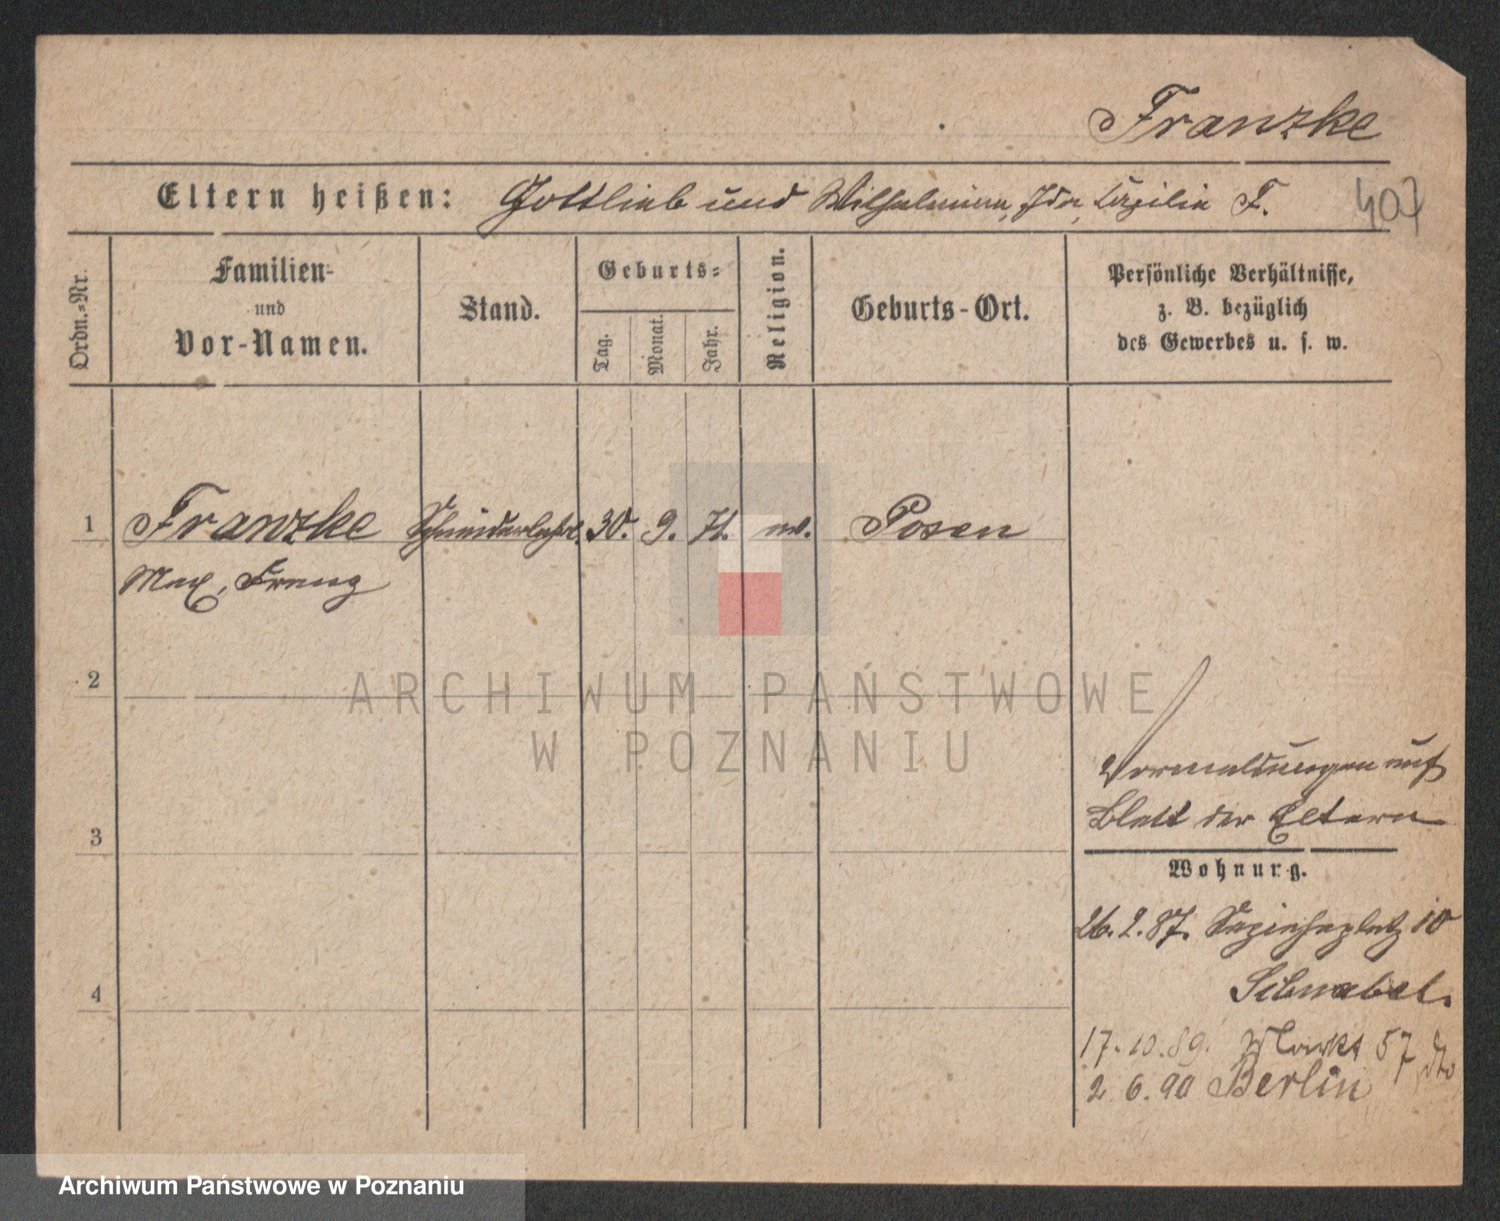 Franzke
Eltern heißen: Gottlieb und Wilhelmine, Ida, Cäzilie F. 407
Ordn.-Nr.
Familien-
und
Vor-Namen.
Stand.
Geburts-
Tag.
Monat.
Jahr.
Religion.
Geburts-Ort.
Persönliche Verhältnisse,
z. B. bezüglich
des Gewerbes u. s. w.
1 Franzke Schneiderlehrl. 30. 9. 71. ev. Posen
Max, Franz
2
3
4
Vormeldungen auf
Blatt der Eltern
Wohnung.
26. 2. 87. Sapiehaplatz 10
Schnabel.
17. 10. 89. Markt 57 dto
2 6. 90 Berlin
ARCHIWUM PAŃSTWOWE
W POZNANIU
Archiwum Państwowe w Poznaniu